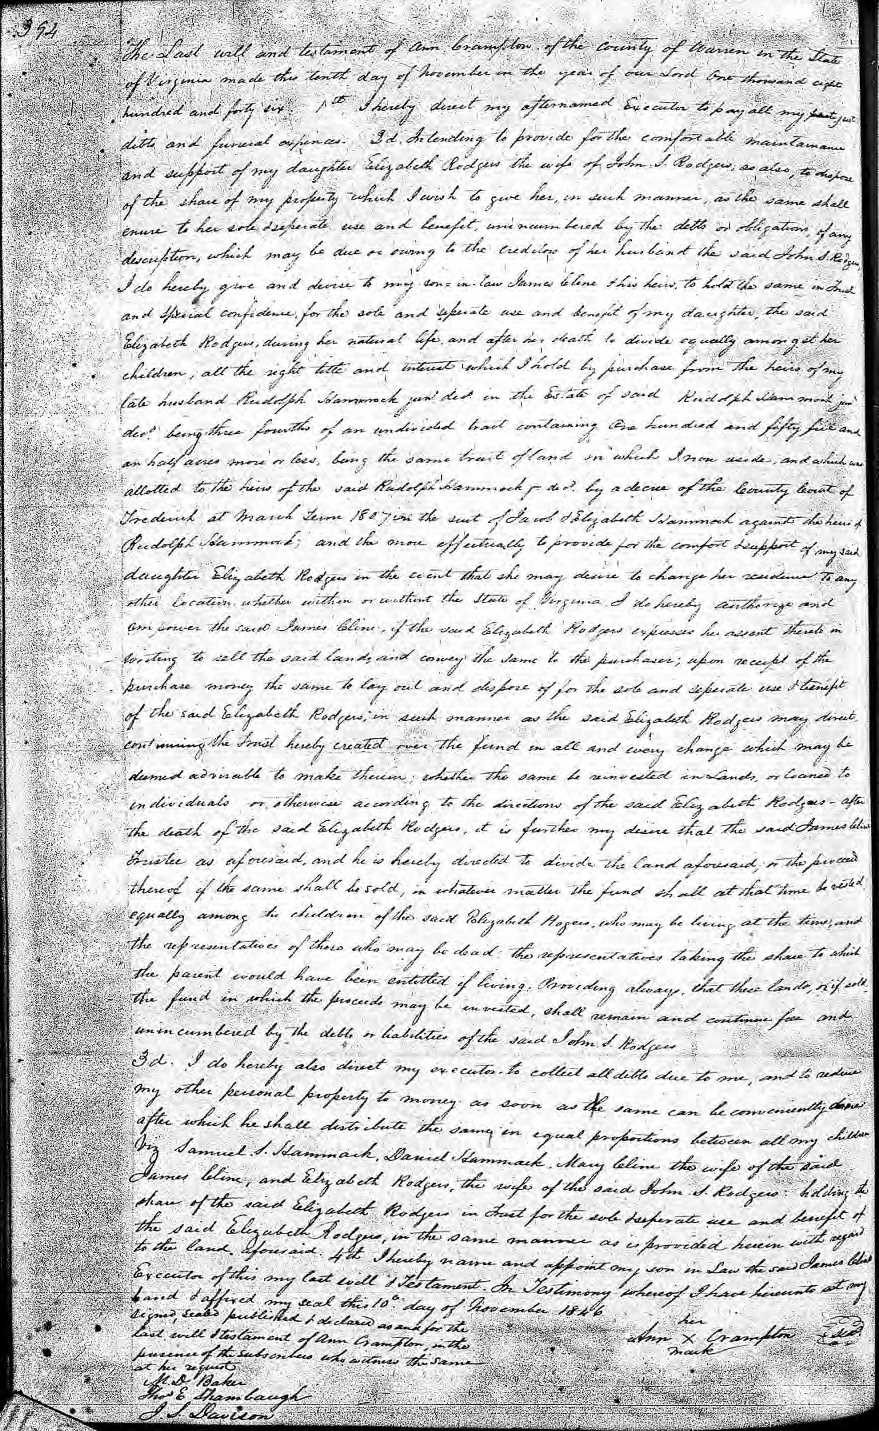 394
The Last will and testament of Ann Crampton of the County of Warren in the State
of Virginia made this tenth day of November in the year of our Lord One thousand eight
hundred and forty six. 1st I hereby direct my afternamed Executor to pay all my just
debts and funeral expences. 2d. Intending to provide for the comfortable maintainance
and support of my daughter Elizabeth Rodgers the wife of John S. Rodgers, as also, to dispose
of the share of my property which I wish to give her, in such manner, as the same shall
enure to her sole & seperate use and benefit, unincumbered by the debts or obligations, of any
description, which may be due or owing to the creditors of her husband the said John S. Rodgers,
I do hereby give and devise to my son-in-law James Cline & his heirs, to hold the same in Trust
and Special confidence, for the sole and seperate use and benefit of my daughter, the said
Elizabeth Rodgers, during her natural life, and after her death to divide equally amongst her
children, all the right title and interest which I hold by purchase from the heirs of my
late husband Rudolph Hammock junr decd. in the Estate of said Rudolph Hammock junr
decd. being three fourths of an undivided tract containing One hundred and fifty five and
an half acres more or less, being the same tract of land in which I now reside, and which was
allotted to the heirs of the said Rudolph Hammock decd. by a decree of the County Court of
Frederick at March Term 1807 in the suit of Jacob & Elizabeth Hammock against the heirs of
Rudolph Hammock; and the more effectually to provide for the comfort & support of my said
daughter Elizabeth Rodgers in the event that she may desire to change her residence to any
other location, whether within or without the State of Virginia, I do hereby authorize and
empower the said James Cline, if the said Elizabeth Rodgers expresses her assent thereto in
writing to sell the said land, and convey the same to the purchaser; upon receipt of the
purchase money the same to lay out and dispose of for the sole and seperate use & benefit
of the said Elizabeth Rodgers, in such manner as the said Elizabeth Rodgers may direct.
continuing the Trust hereby created over the fund in all and every change which may be
deemed advisable to make therein; whether the same be reinvested in Lands, or loaned to
individuals or, otherwise according to the directions of the said Elizabeth Rodgers - after
the death of the said Elizabeth Rodgers, it is further my desire that the said James Cline
Trustee as aforesaid, and he is hereby directed to divide the land aforesaid, or the proceeds
thereof if the same shall be sold, in whatever matter the fund shall at that time be vested,
equally among the children of the said Elizabeth Rogers, who may be living at the time, and
the representatives of those who may be dead: the representatives taking the share to which
the parent would have been entitled if living. Providing always, that these lands, or if sold
the fund in which the proceeds may be invested, shall remain and continue free and
unincumbered by the debts or liabilities of the said John S. Rodgers
3d. I do hereby also direct my executor to collect all debts due to me, and to reduce
my other personal property to money as soon as the same can be conveniently done
after which he shall distribute the same, in equal proportions between all my children
Viz Samuel S. Hammack, Daniel Hammack, Mary Cline the wife of the said
James Cline, and Elizabeth Rodgers, the wife of the said John S. Rodgers: holding the
share of the said Elizabeth Rodgers in Trust for the sole & seperate use and benefit of
the said Elizabeth Rodgers, in the same manner as is provided herein with regard
to the land, aforesaid. 4th I hereby name and appoint my son in Law the said James Cline
Executor of this my last will & Testament. In Testimony whereof I have hereunto set my
hand & affixed my seal this 10th day of November 1846
Signed, sealed published & declared as and for the
last will & testament of Ann Crampton, in the
presence of the subscribers who witness the same
at her request
her
Ann X Crampton Seal
mark
M. D. Baker
Thos E. Shambaugh
J. S. Davison